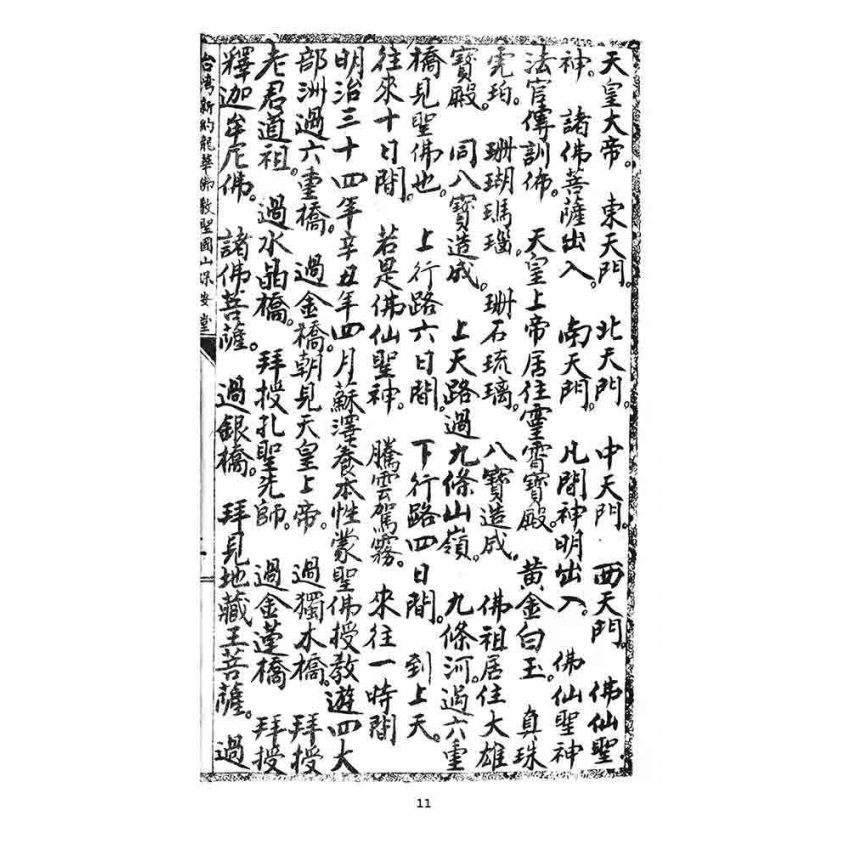 天皇大帝。東天門。北天門。中天門。西天門。佛仙聖
神。諸佛菩薩出入。南天門。凡間神明出入。佛仙聖神
法官傳訓佛。天皇上帝居住靈霄寶殿。黃金白玉。真珠
琥珀。珊瑚瑪瑙。珊石琉璃。八寶造成。佛祖居住大雄
寶殿。同八寶造成。上天路過九條山嶺。九條河。過六重
橋見聖佛也。上行路六日間。下行路四日間。到上天。
往來十日間。若是佛仙聖神。騰雲駕霧。來往一時間
明治三十四年辛丑年四月蘇澤養本性蒙聖佛授教遊四大
部洲過六重橋。過金橋朝見天皇上帝。過獨木橋。拜授
老君道祖。過水晶橋。拜授孔聖先師。過金蓮橋 拜授
釋迦牟尼佛。諸佛菩薩。過銀橋。拜見地藏王菩薩。過
台灣新約龍華佛教聖國山保安堂
11